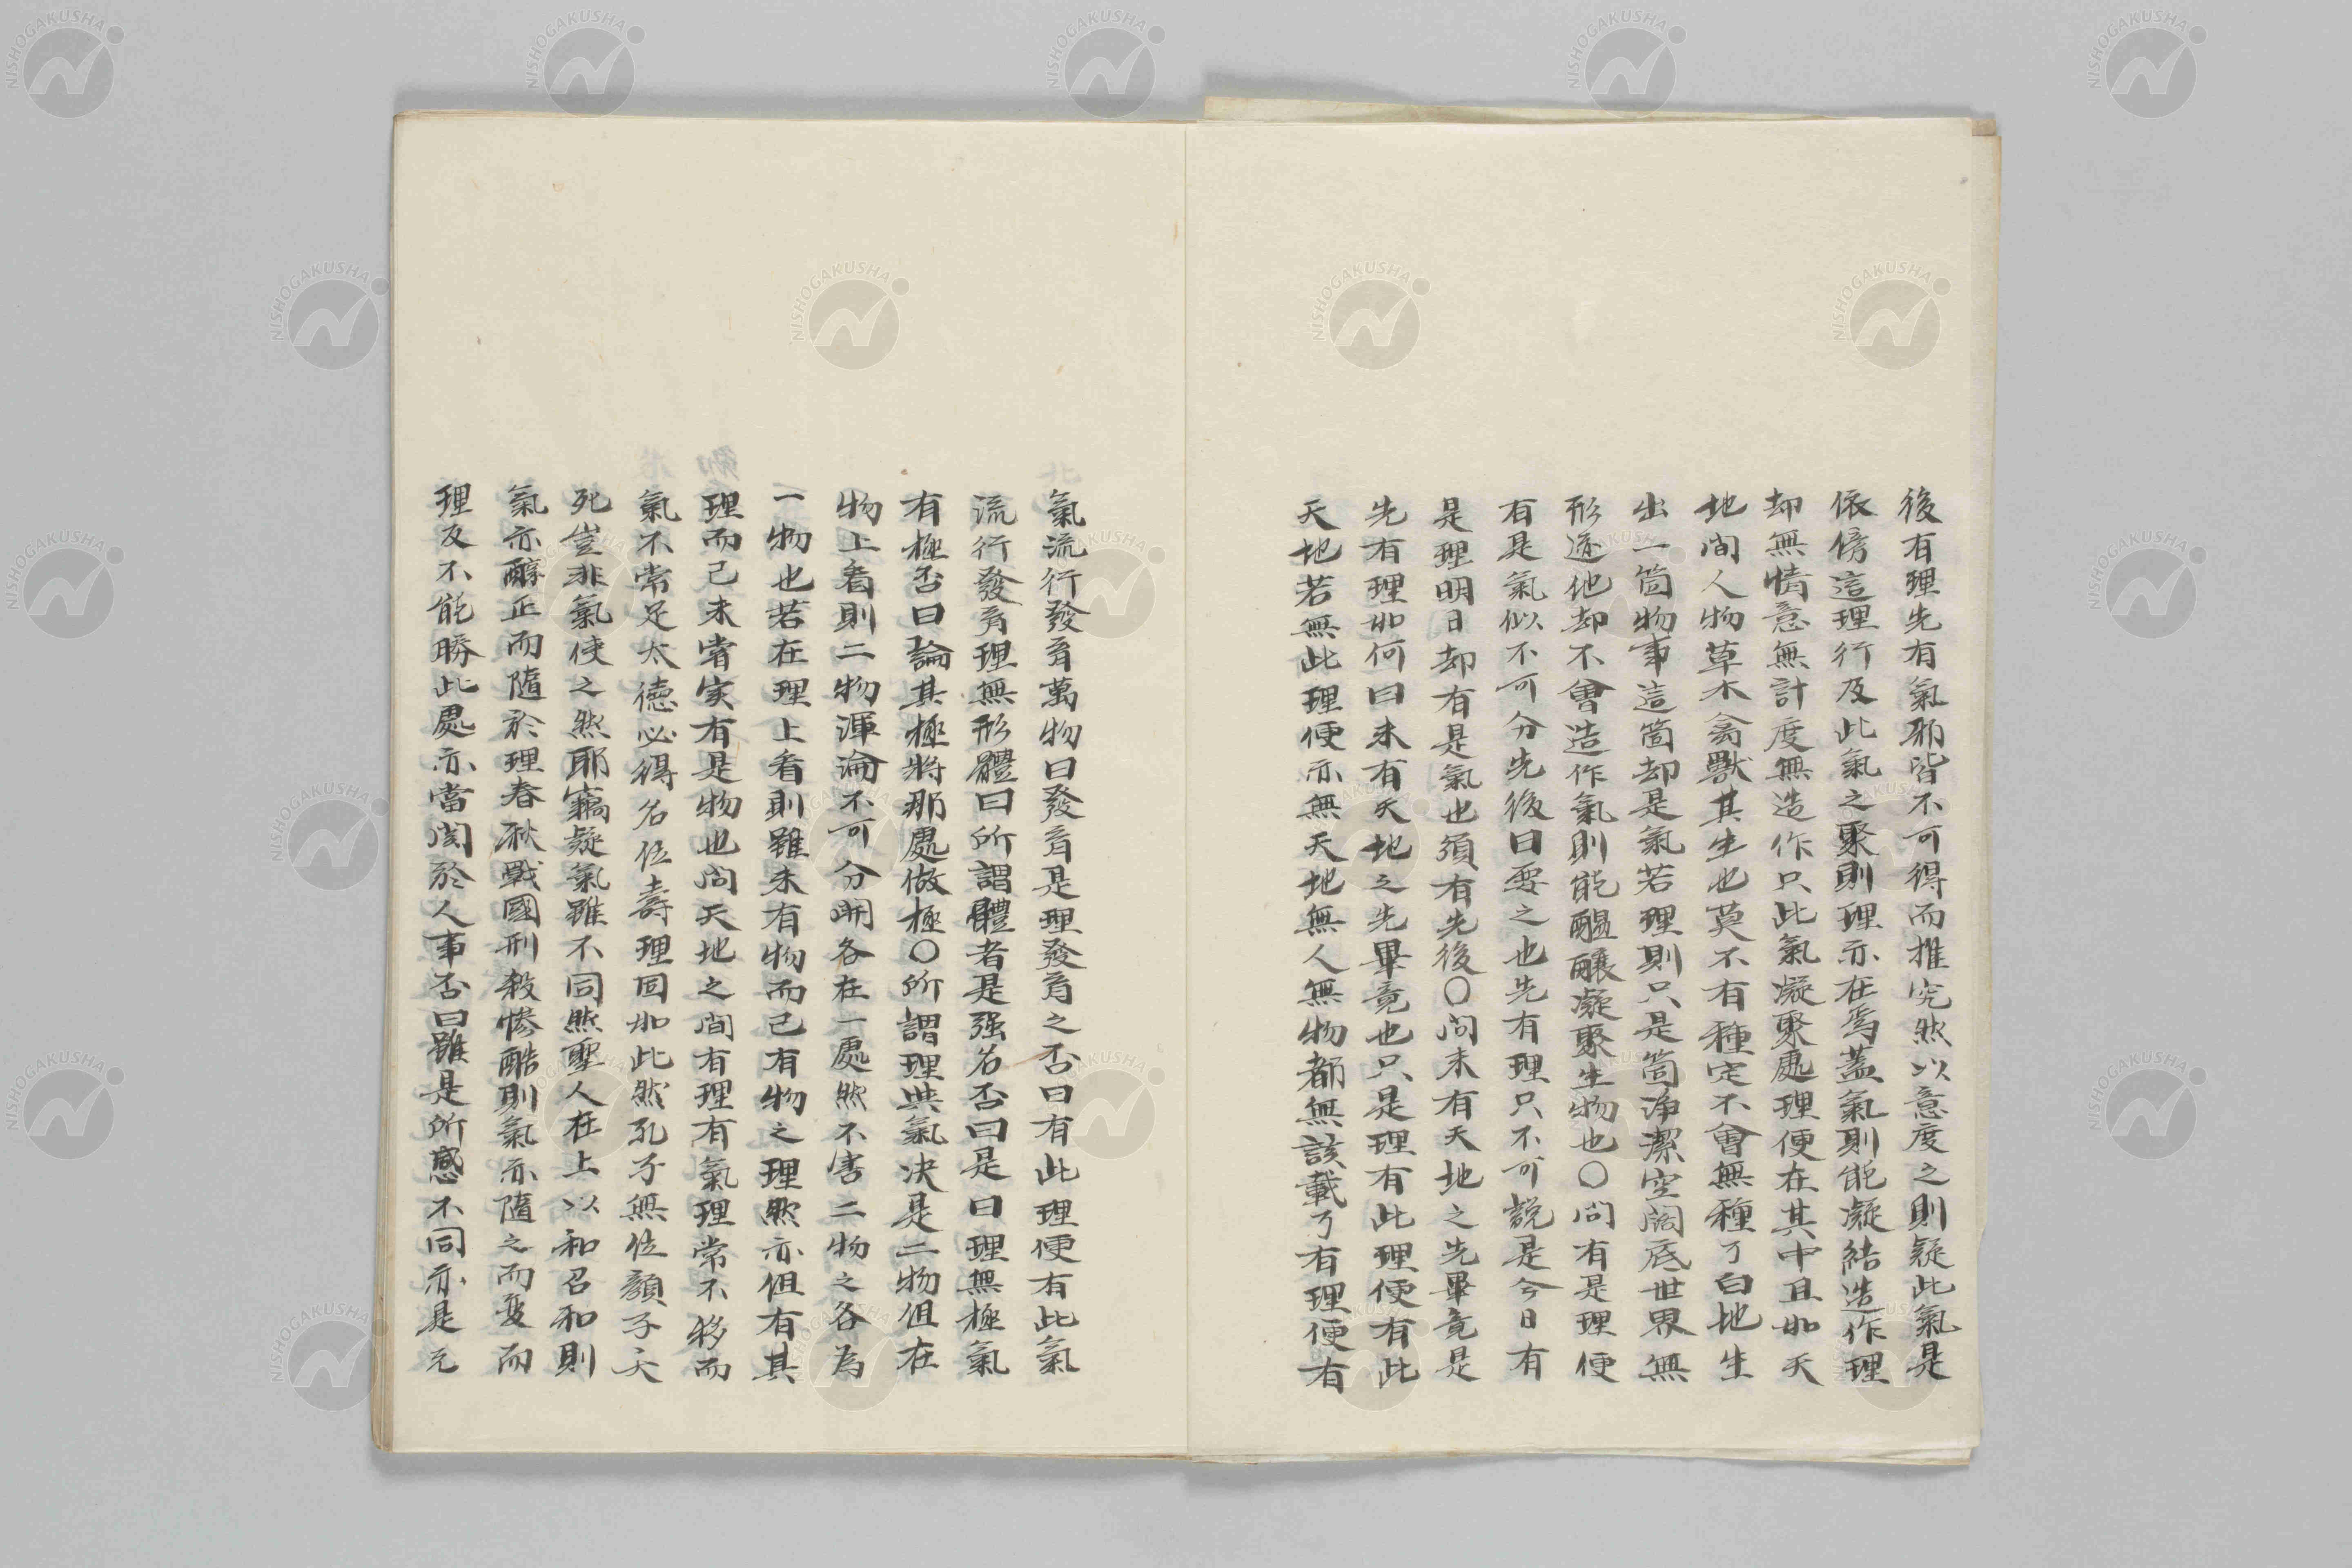 後有理先有氣邪皆不可得而推究然以意度之則疑此氣是
依傍這理行及此氣之聚則理亦在焉蓋氣則能凝結造作理
却無情意無計度無造作只此氣凝聚處理便在其中且如天
地間人物草木禽獸其生也莫不有種定不會無種了白地生
出一箇物事這箇却是氣若理則只是箇淨潔空闊底世界無
形迹他却不會造作氣則能醞釀凝聚生物也〇問有是理便
有是氣似不可分先後曰要之也先有理只不可說是今日有
是理明日却有是氣也須有先後〇問未有天地之先畢竟是
先有理如何曰未有天地之先畢竟也只是理有此理便有此
天地若無此理便亦無天地無人無物都無該載了有理便有
氣流行發育萬物曰發育是理發育之否曰有此理便有此氣
流行發育理無形體曰所謂體者是强名否曰是曰理無極氣
有極否曰論其極將那處做極〇所謂理與氣决是二物但在
物上看則二物渾淪不可分開各在一處然不害二物之各為
一物也若在理上看則雖未有物而已有物之理然亦但有其
理而已未嘗实有是物也問天地之間有理有氣理常不移而
氣不常足太德必得名位壽理固如此然孔子無位顏子夭
死豈非氣使之然耶竊疑氣雖不同然聖人在上以和召和則
氣亦醇正而隨於理春秋戰國刑殺慘酷則氣亦隨之而變而
理反不能勝此處亦當関於人事否曰雖是所感不同亦是元
NISHOGAKUSHA